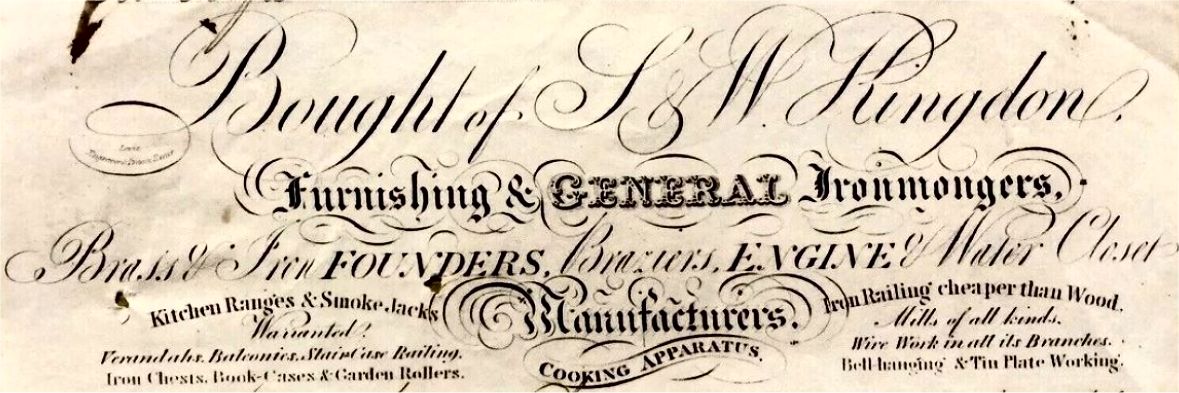 Bought of S & W. Kingdon.
Furnishing & GENERAL Ironmongers,
Brass & Iron FOUNDERS, Braziers, ENGINE & Water Closet
Manufacturers.
COOKING APPARATUS.
Kitchen Ranges & Smoke Jacks
Warranted.
Verandahs, Balconies, Stair Case Railing,
Iron Chests, Book-Cases & Garden Rollers.
Iron Railing cheaper than Wood,
Mills of all kinds,
Wire Work in all its Branches.
Bell-hanging & Tin Plate Working.